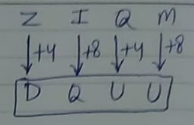 Z I Q M
+4 +8 +4 +8
D Q U U